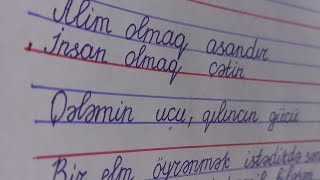 Alim olmaq asandır
İnsan olmaq çətin
Qələmin ucu, qılıncın gücü
Bir elm öyrənmək istədikdə